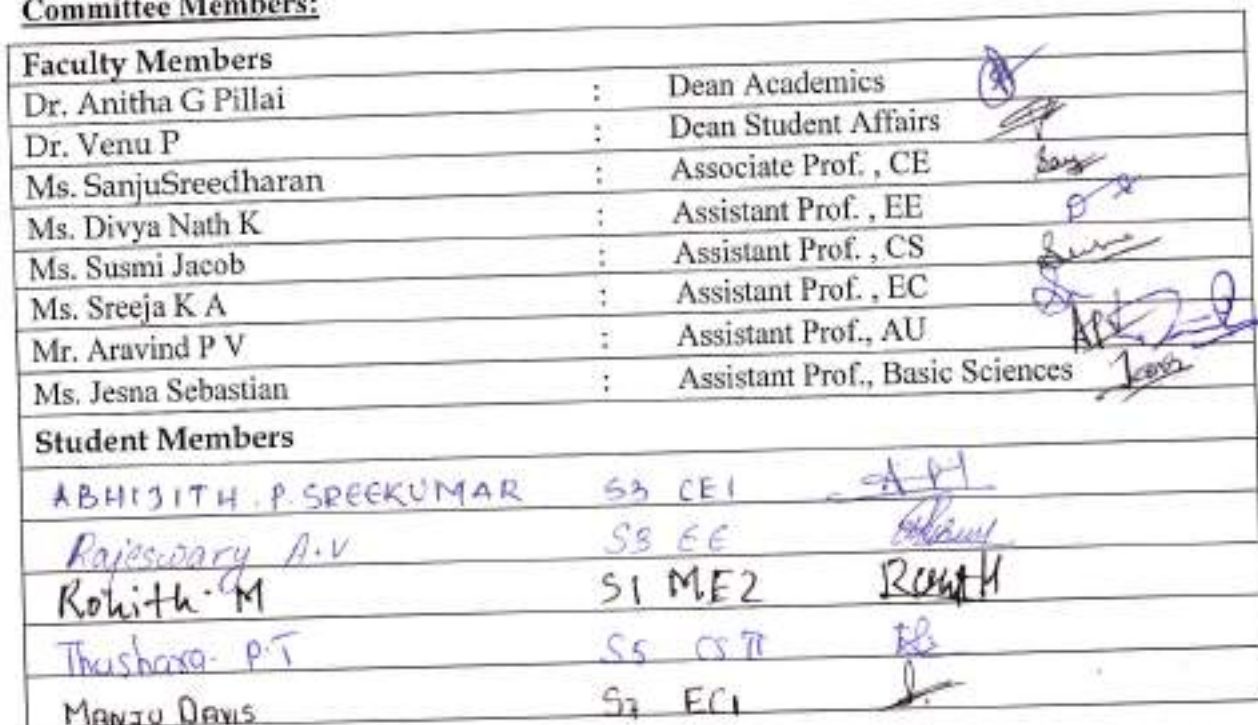 Committee Members:
Faculty Members
Dr. Anitha G Pillai : Dean Academics
Dr. Venu P : Dean Student Affairs
Ms. SanjuSreedharan : Associate Prof. , CE
Ms. Divya Nath K : Assistant Prof. , EE
Ms. Susmi Jacob : Assistant Prof. , CS
Ms. Sreeja K A : Assistant Prof. , EC
Mr. Aravind P V : Assistant Prof., AU
Ms. Jesna Sebastian : Assistant Prof., Basic Sciences
Student Members
ABHIJITH . P. SREEKUMAR S3 CE1
Rajeswary A.V S3 EE
Rohith. M S1 ME2
Thushara. P.T S5 CS II
MANJU DAVIS S7 EC1